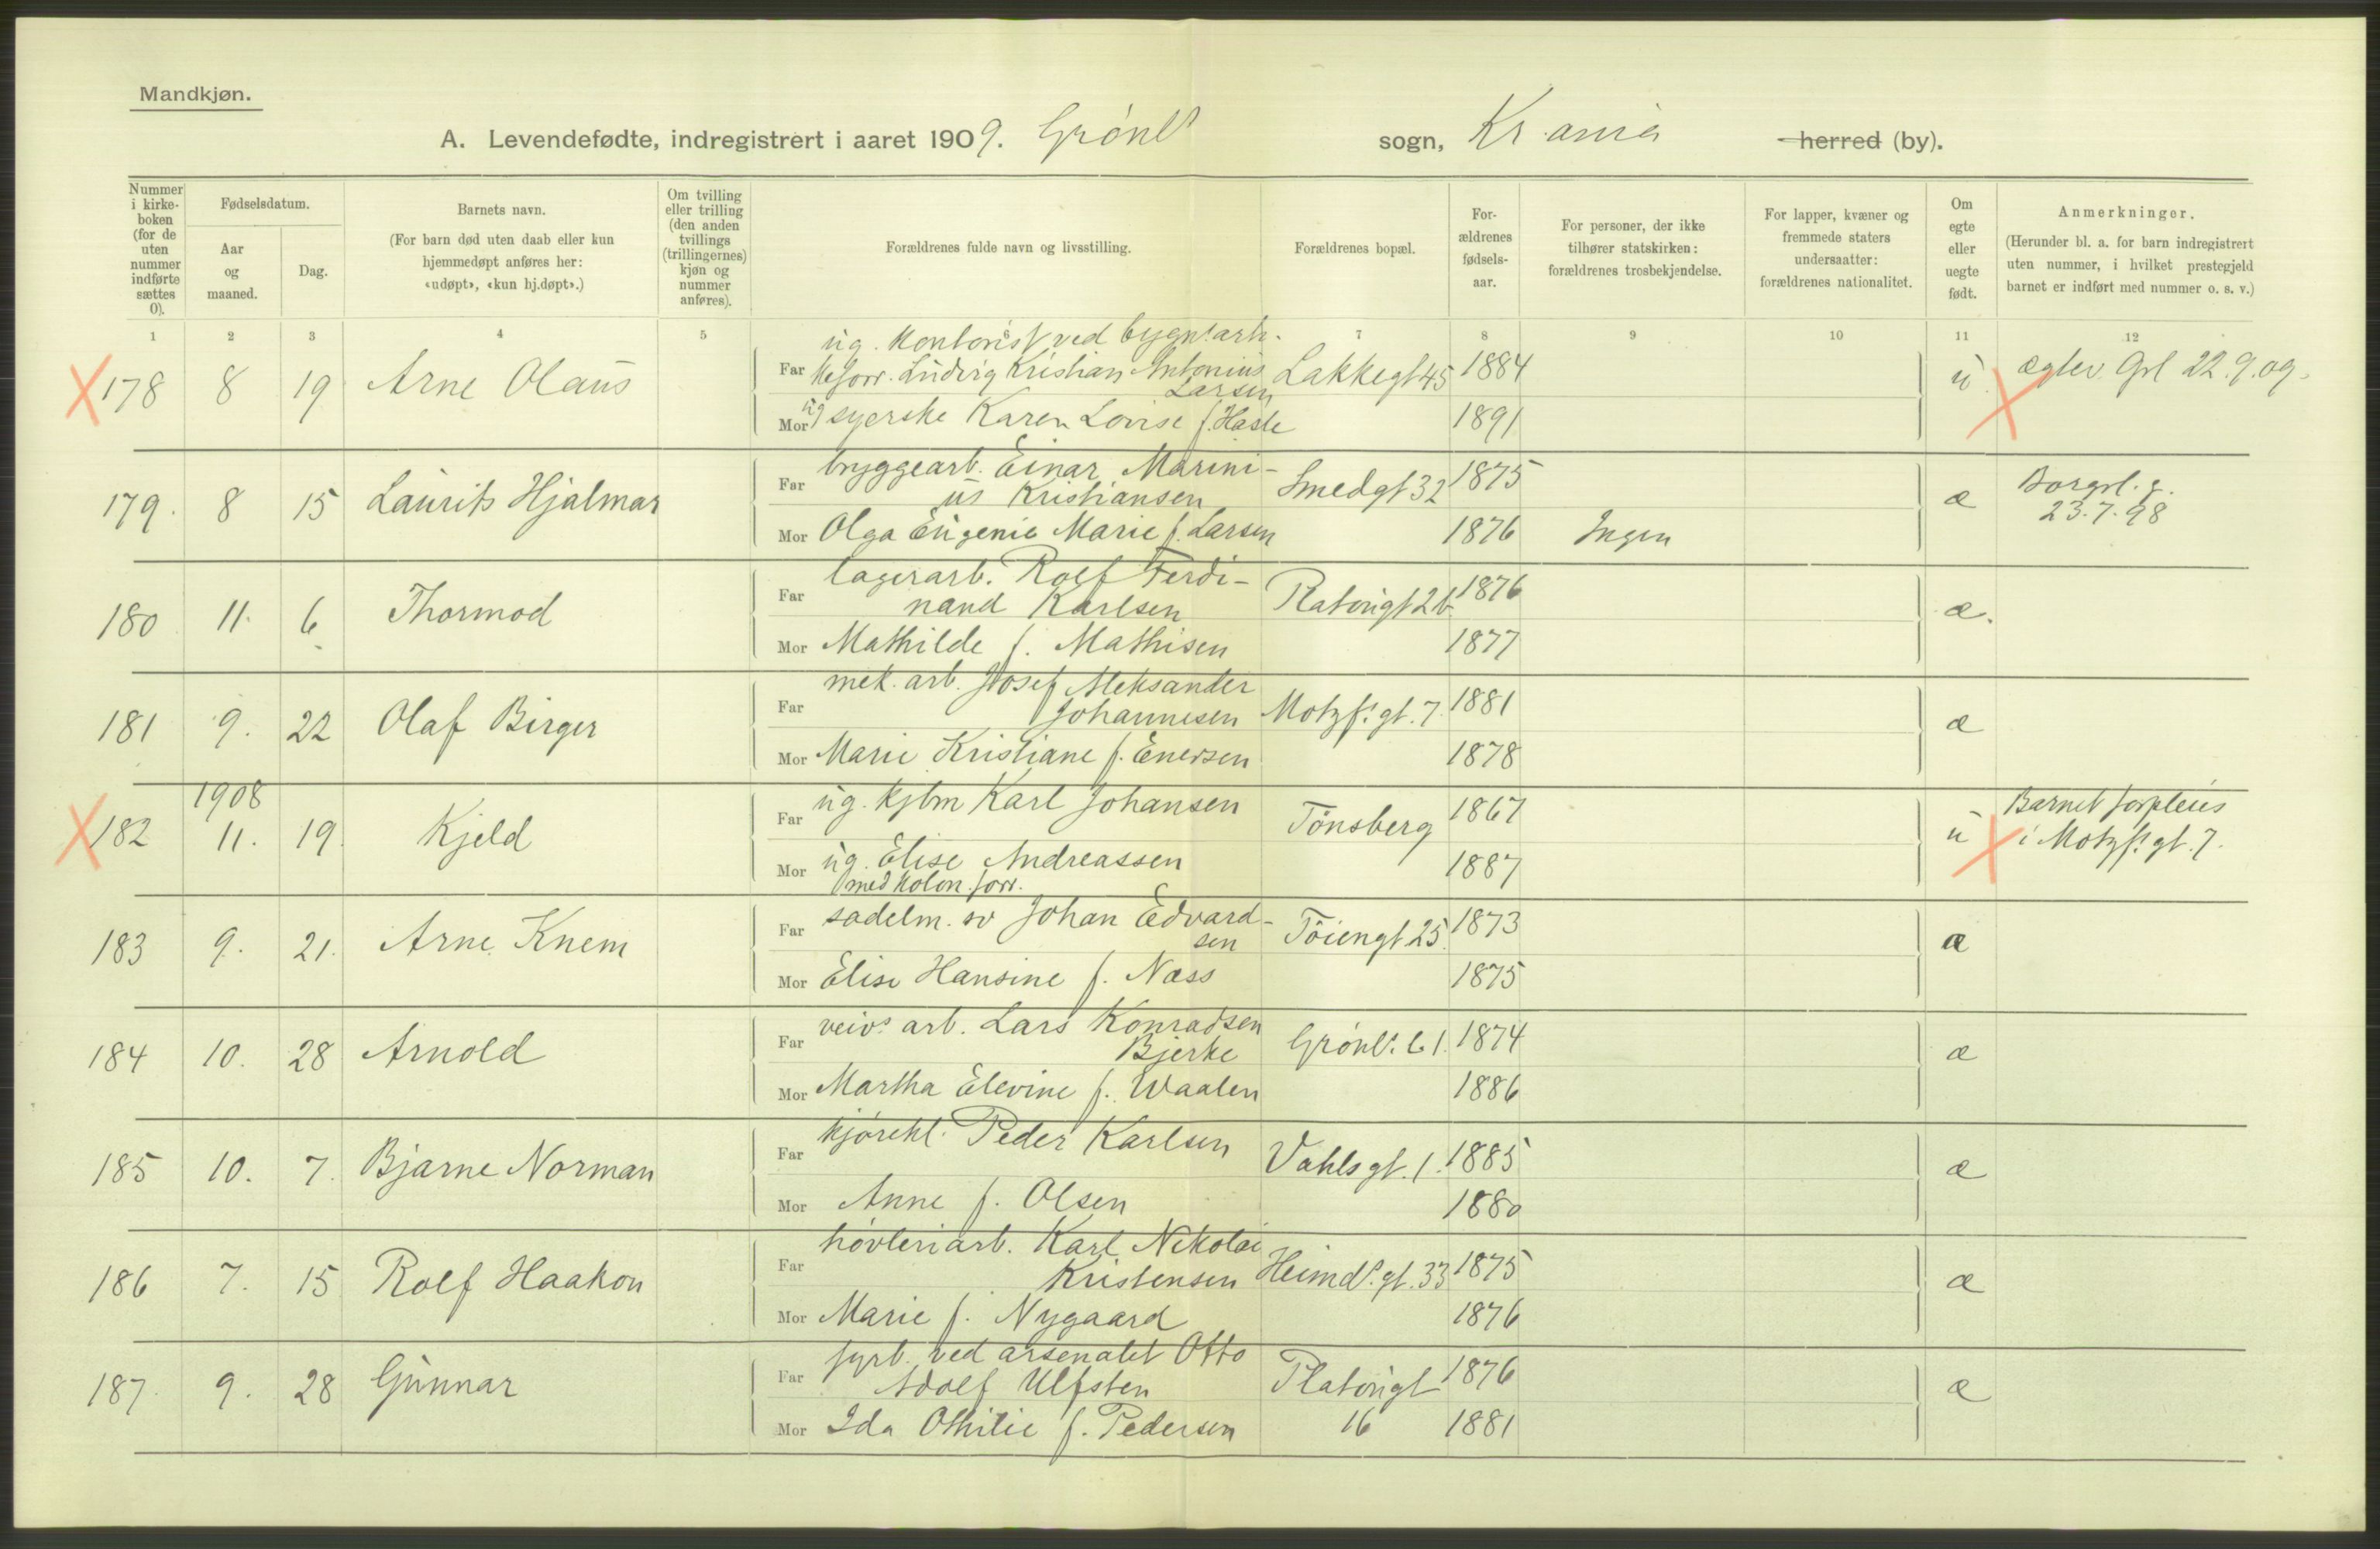 Mandkjøn.
A. Levendefødte, indregistrert i aaret 1909. Grønl. sogn, Kr.ania herred (by).
Nummer i kirkeboken (for de uten nummer indførte sættes 0).
Fødselsdatum.
Aar og maaned.
Dag.
Barnets navn.
(For barn død uten daab eller kun hjemmedøpt anføres her: «udøpt», «kun hj.døpt».)
Om tvilling eller trilling (den anden tvillings (trillingernes) kjøn og nummer anføres).
Forældrenes fulde navn og livsstilling.
Forældrenes bopæl.
Forældrenes fødselsaar.
For personer, der ikke tilhører statskirken: forældrenes trosbekjendelse.
For lapper, kvæner og fremmede staters undersaatter: forældrenes nationalitet.
Om egte eller uegte født.
Anmerkninger.
(Herunder bl. a. for barn indregistrert uten nummer, i hvilket prestegjeld barnet er indført med nummer o. s. v.)
1 2 3 4 5 7 8 9 10 11 12
ug. kontorist ved
178 8 19 Arne Olaus Far Ludvig Kristian Antonius Lakkegt 45 1884 u. Grl 22.9.09.
Larsen
Mor ug syerske Karen Lovise f. Hasle 1891
bryggearb. Einar Marini-
179. 8 15 Laurits Hjalmar Far us Kristiansen Smedgt 32 1875 æ 23.7.98
Mor Olga Eugenie Marie f. Larsen 1876 Ingen
lagerarb. Rolf Ferdi-
180 11. 6 Thormod Far nand Karlsen Platougt 2b 1876 æ.
Mor Mathilde f. Mathisen 1877
mek. arb. Josef Aleksander
181 9. 22 Olaf Birger Far Johannesen Motzf. gt. 7. 1881 æ
Mor Marie Kristiane f. Enersen 1878
1908
182 11. 19. Kjeld Far ug. kjbm Karl Johansen Tönsberg 1867 u Barnet forpleies
i Motzf. gt. 7.
Mor ug. Elise Andreassen 1887
med kolon. forr.
183 9. 21. Arne Knem Far sadelm. sv Johan Edvard- Töiengt 25. 1873 æ
sen
Mor Elise Hansine f. Næss 1875
184 10. 28 Arnold Far veiv. arb. Lars Konradsen Grønl. 61. 1874 æ
Bjerke
Mor Martha Elevine f. Waalen 1886
185 10. 7. Bjarne Norman Far kjørekl. Peder Karlsen Vahls gt. 1. 1885 æ
Mor Anne f. Olsen 1880
høvleriarb. Karl Nikolai
186 7. 15 Rolf Haakon Far Kristensen Heimd. gt. 33 1875 æ
Mor Marie f. Nygaard 1876
fyrb. ved arsenalet Otto
187. 9. 28 Gunnar Far Adolf Ulfsten Platougt 1876 æ
Mor Ida Othilie f. Pedersen 16 1881